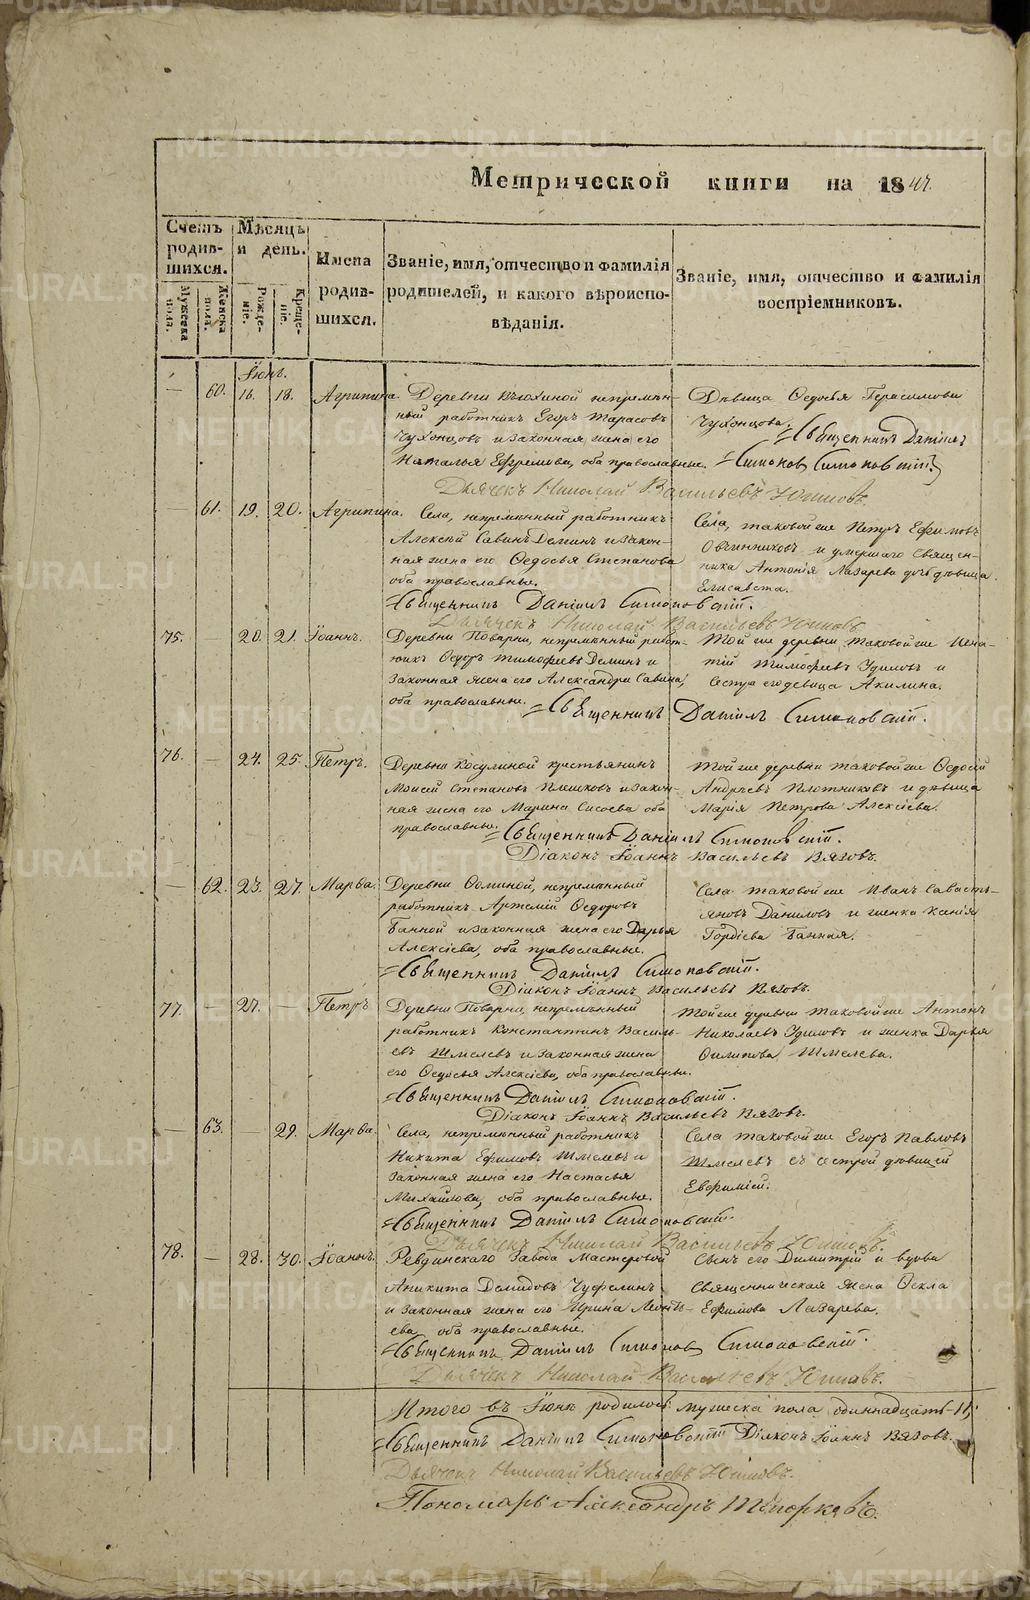 METRIKI.GASO-URAL.RU
Метрической книги на 1847.
Счетъ родив-шихся.
Мужеска пола.
Женска пола.
Мѣсяцъ и день.
Рожде-ніе.
Креще-ніе.
Имена родив-шихся.
Званіе, имя, отчество и фамилія
родителей, и какого вѣроиспо-
вѣданія.
Званіе, имя, отчество и фамилія
воспріемниковъ.
Іюнь.
— 60. 16. 18. Агрипина.
Деревни непремѣн-
ный работникъ Егоръ Тарасовъ
Чухонцовъ и законная жена его
Наталья Ефремова, оба православные.
Дѣвица Ѳедосья Герасимова
Чухонцова.
Священникъ Даніилъ
Симоновскій
Дьячекъ Николай Васильевъ
— 61. 19. 20. Агрипина.
Села, непремѣнный работникъ
Алексѣй Савинъ Деминъ и закон-
ная жена его Ѳедосья Степанова
оба православные.
Села, таковой же Петръ Ефимовъ
Овчинниковъ и умершаго священ-
ника Антонія Лазарева дочь дѣвица
Елисавета.
Священникъ Даніилъ Симоновскій.
Дьячекъ Николай Васильевъ
75. — 20. 21. Іоаннъ.
Деревни Поварни, непремѣнный работ-
никъ Ѳедоръ Тимофеевъ Деминъ и
законная жена его Александра Савина,
оба православные.
Той же деревни таковой же Игна-
тій Тимофеевъ и
сестра его дѣвица Акилина.
Священникъ Даніилъ Симоновскій.
76. — 24. 25. Петръ.
Деревни Косулиной крестьянинъ
Моисей Степановъ Плешковъ и закон-
ная жена его Марина Сисоева оба
православные.
Той же деревни таковой же Ѳедосій
Андреевъ Плотниковъ и дѣвица
Марія Петрова Алексіева.
Священникъ Даніилъ Симоновскій.
Діаконъ Іоаннъ Васильевъ Вязовъ.
— 62. 23. 27. Марѳа.
Деревни непремѣнный
работникъ Артемій Ѳедоровъ
Банной и законная жена его Дарья
Алексіева, оба православные.
Села таковой же Иванъ Савасть-
яновъ Даниловъ и женка Ксенія
Гордіева Банная.
Священникъ Даніилъ Симоновскій.
Діаконъ Іоаннъ Васильевъ Вязовъ.
77. — 27. — Петръ
Деревни Поварни, непремѣнный
работникъ Константинъ Василь-
евъ Шмелевъ и законная жена
его Ѳедосья Алексіева, оба православные.
Той же деревни таковой же Антонъ
Николаевъ и женка Дарья
Филипова Шмелева.
Священникъ Даніилъ Симоновскій.
Діаконъ Іоаннъ Васильевъ Вязовъ.
— 63. — 29. Марѳа.
Села, непремѣнный работникъ
Никита Ефимовъ Шмелевъ и
законная жена его Настасья
Михайлова, оба православные.
Села таковой же Егоръ Павловъ
Шмелевъ съ сестрой дѣвицей
Евфиміей.
Священникъ Даніилъ Симоновскій.
Дьячекъ Николай Васильевъ
78. — 28. 30. Іоаннъ.
Ревдинскаго Завода Мастеровой
Аникита Демидовъ и законная жена его Ирина Леонть-
ева, оба православные.
Сынъ его Димитрій и вдова
священническая жена Ѳекла
Ефимова Лазарева.
Священникъ Даніилъ Симоновскій.
Дьячекъ Николай Васильевъ
Итого въ Іюнѣ родилось мужеска пола одиннадцать 11,
Священникъ Даніилъ Симоновскій Діаконъ Іоаннъ Вязовъ.
Дьячекъ Николай Васильевъ
Пономарь Александръ Топорковъ.